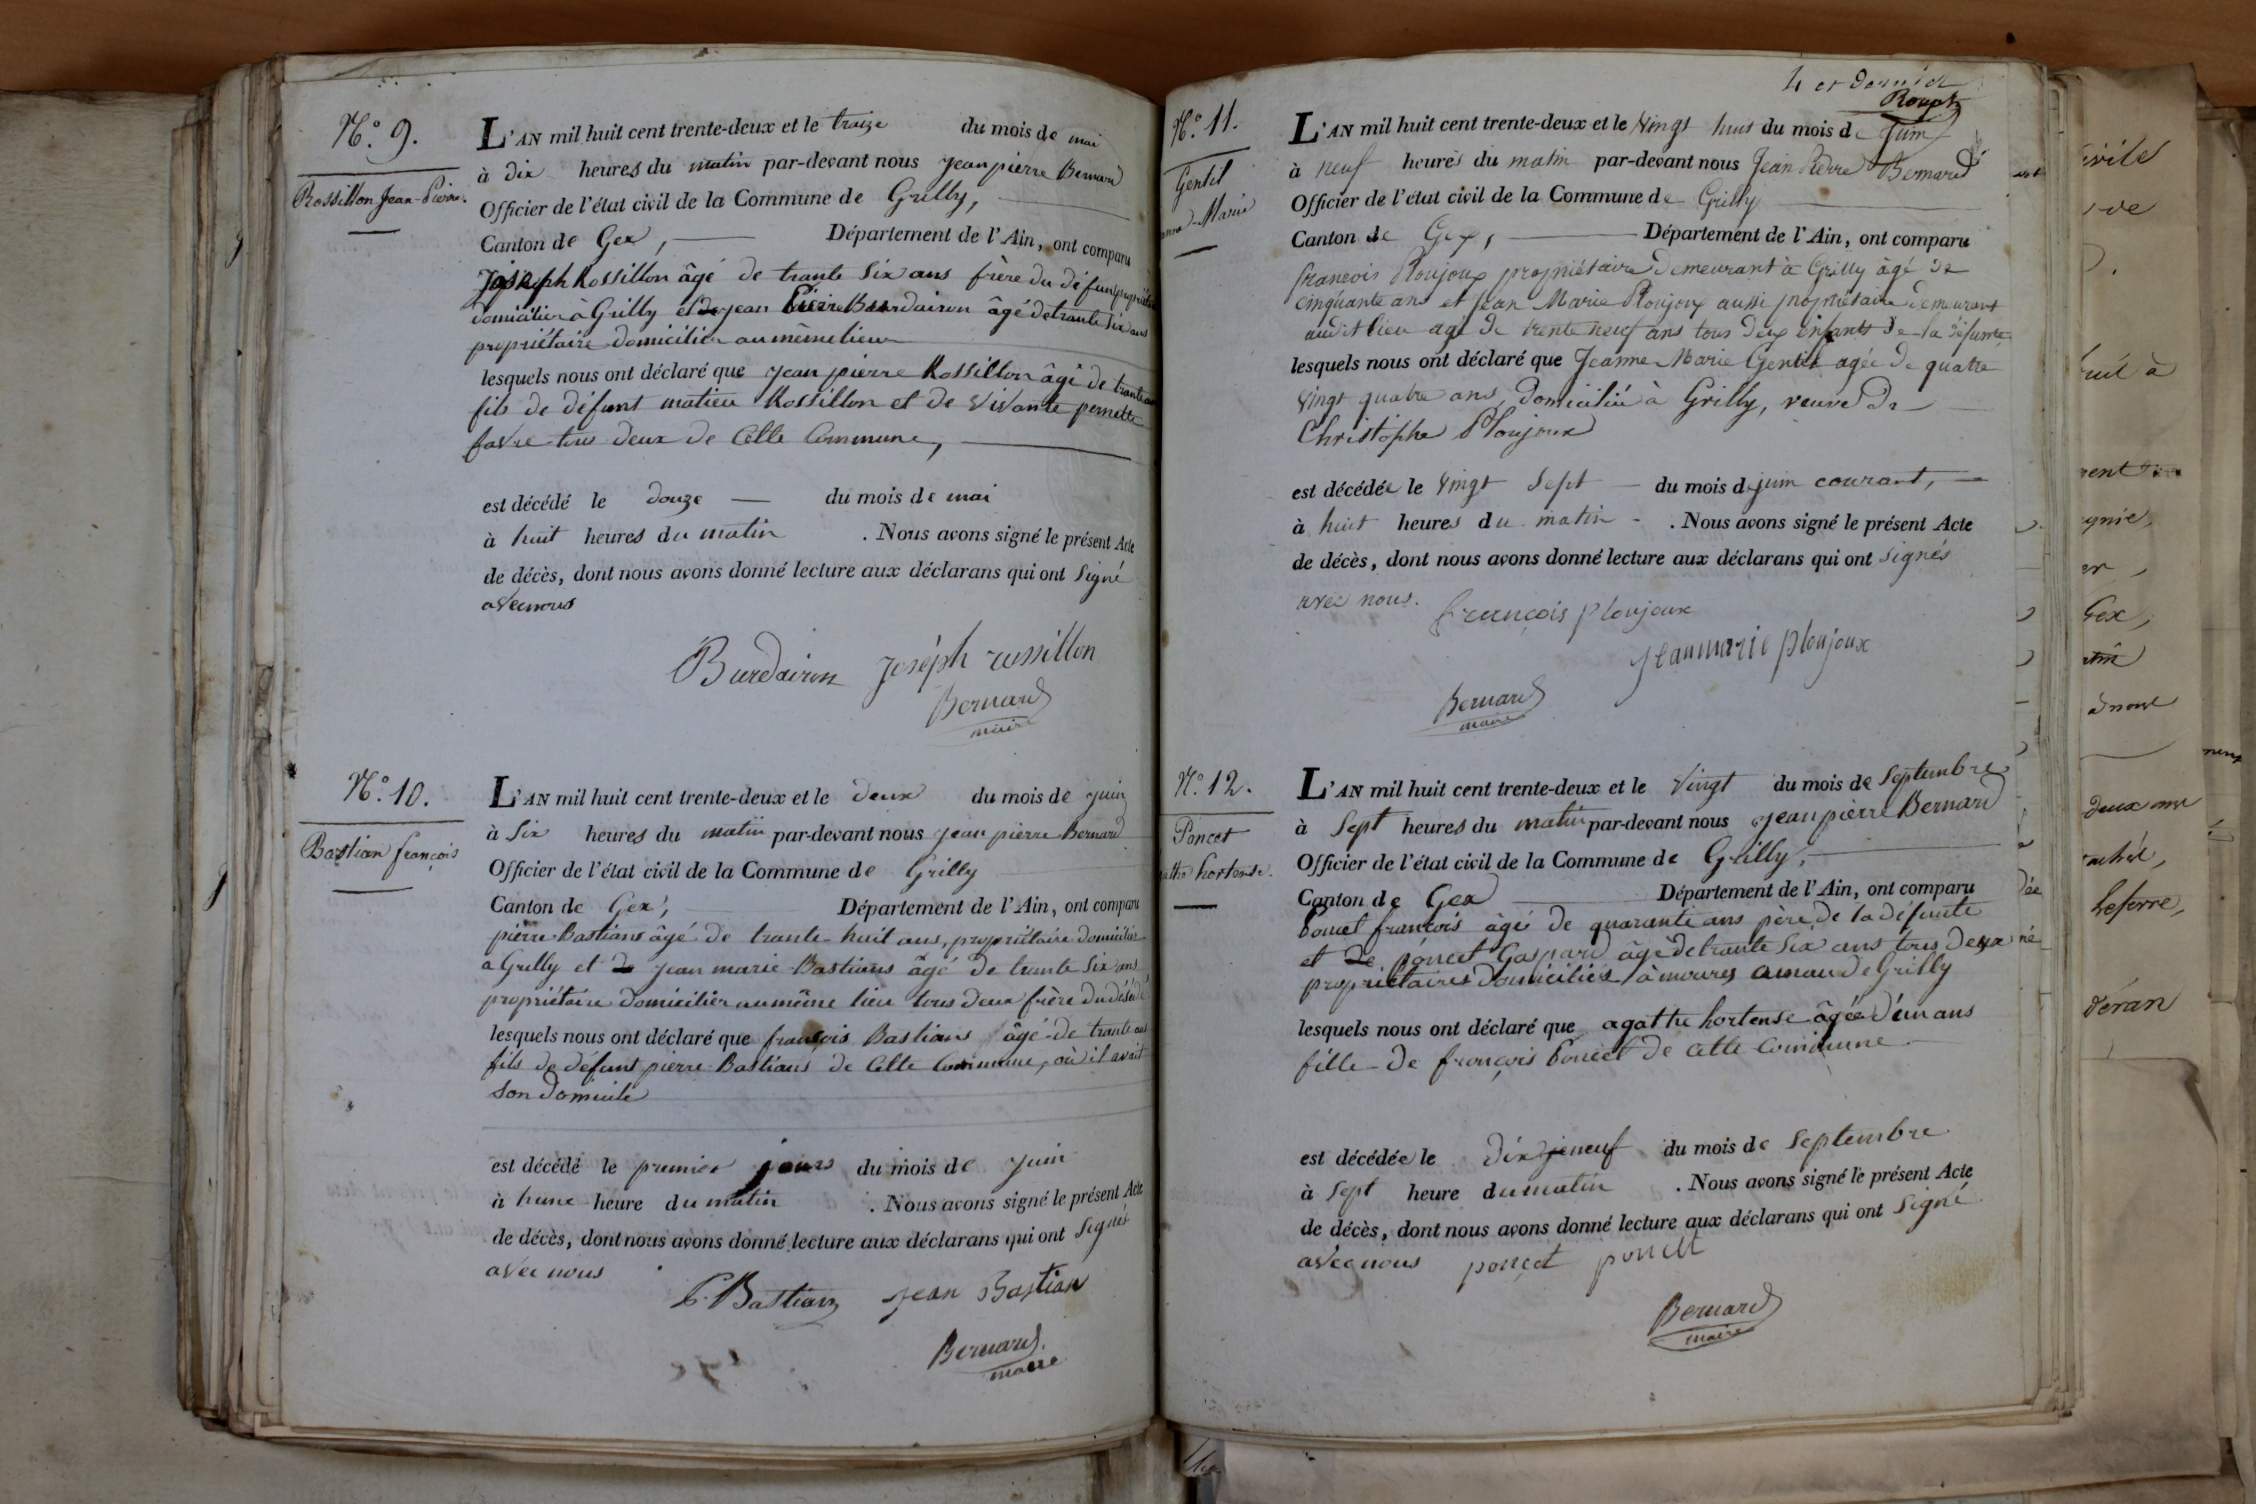 N.° 9.
Rossillon Jean-Pierre.
L'AN mil huit cent trente-deux et le traize du mois de mai
à dix heures du matin par-devant nous jean pierre Bernard
Officier de l'état civil de la Commune de Grilly,
Canton de Gex, Département de l'Ain, ont comparu
Joseph Rossillon âgé de trante Six ans frère du défunt propriétaire
domicilier à Grilly et de jean Pierre Burdairon âgé de trante Six ans
propriétaire domicilier au même lieu
lesquels nous ont déclaré que jean pierre Rossillon âgé de trante ans
fils de défunt matieu Rossillon et de vivante pernette
favre tous deux de Cette Commune,
est décédé le douze du mois de mai
à huit heures du matin . Nous avons signé le présent Acte
de décès, dont nous avons donné lecture aux déclarans qui ont Signé
avec nous
Burdairon joséph rossillon
Bernard
maire
N.° 10.
Bastian françois
L'AN mil huit cent trente-deux et le deux du mois de juin
à Six heures du matin par-devant nous jean pierre Bernard
Officier de l'état civil de la Commune de Grilly
Canton de Gex, Département de l'Ain, ont comparu
pierre Bastians âgé de trante huit ans, propriétaire domicilier
a Grilly et de jean marie Bastians âgé de trante Six ans
propriétaire domicilier au même lieu tous deux frère du désédé
lesquels nous ont déclaré que fransois Bastians âgé de trante ans
fils de défunt pierre Bastians de Cette Commune, où il avait
Son domicile
est décédé le premier jours du mois de juin
à hune heure du matin . Nous avons signé le présent Acte
de décès, dont nous avons donné lecture aux déclarans qui ont Signés
avec nous
P. Bastian jean Bastian
Bernard
maire
4 et dernier
N.° 11.
Gentil
Marie
L'AN mil huit cent trente-deux et le vingt huit du mois de Juin
à neuf heures du matin par-devant nous Jean Pierre Bernard
Officier de l'état civil de la Commune de Grilly
Canton de Gex, Département de l'Ain, ont comparu
francois Ploujoux propriétaire demeurant à Grilly âgé de
cinquante ans et Jean Marie Ploujoux aussi propriétaire demeurant
audit lieu agé de trente neuf ans tous deux enfants de la défunte
lesquels nous ont déclaré que Jeanne-Marie Gentil agée de quatre
vingt quatre ans, domiciliée à Grilly, veuve de
Christophe Ploujoux
est décédée le vingt Sept du mois de juin courant,
à huit heures du matin . Nous avons signé le présent Acte
de décès, dont nous avons donné lecture aux déclarans qui ont signés
avec nous.
françois ploujoux
jeanmarie ploujoux
Bernard
maire
N.° 12.
Poncet
hortense.
L'AN mil huit cent trente-deux et le vingt du mois de Septembre
à Sept heures du matin par-devant nous jean pierre Bernard
Officier de l'état civil de la Commune de Grilly,
Canton de Gex Département de l'Ain, ont comparu
Poncet francois âgé de quarante ans père de la défunte
et de poncet Gaspard âgé de trante Six ans tous deux
propriétaires domiciliers à mourex amau de Grilly
lesquels nous ont déclaré que agatthe hortense âgée d'un ans
fille de françois Poncet de Cette Commune
est décédée le dix neuf du mois de Septembre
à Sept heure du matin . Nous avons signé le présent Acte
de décès, dont nous avons donné lecture aux déclarans qui ont Signé
avec nous poncet poncet
Bernard
maire